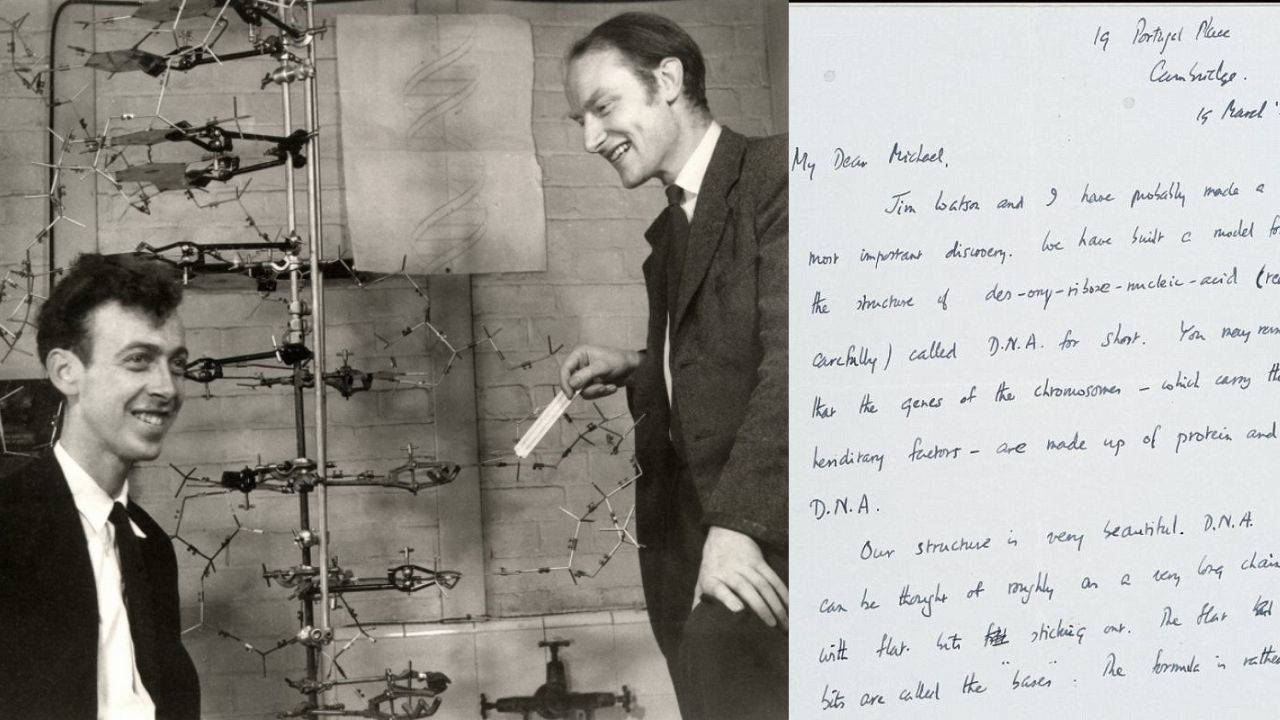 19 Portugal Place
Cambridge.
19 March '
My Dear Michael,
Jim Watson and I have probably made a
most important discovery. We have built a model for
the structure of des-oxy-ribose-nucleic-acid (read
carefully) called D.N.A. for short. You may
that the genes of the chromosomes – which carry the
hereditary factors – are made up of protein and
D.N.A.
Our structure is very beautiful. D.N.A.
can be thought of roughly as a very long chain
with flat bits sticking out. The flat
bits are called the "bases". The formula is rather